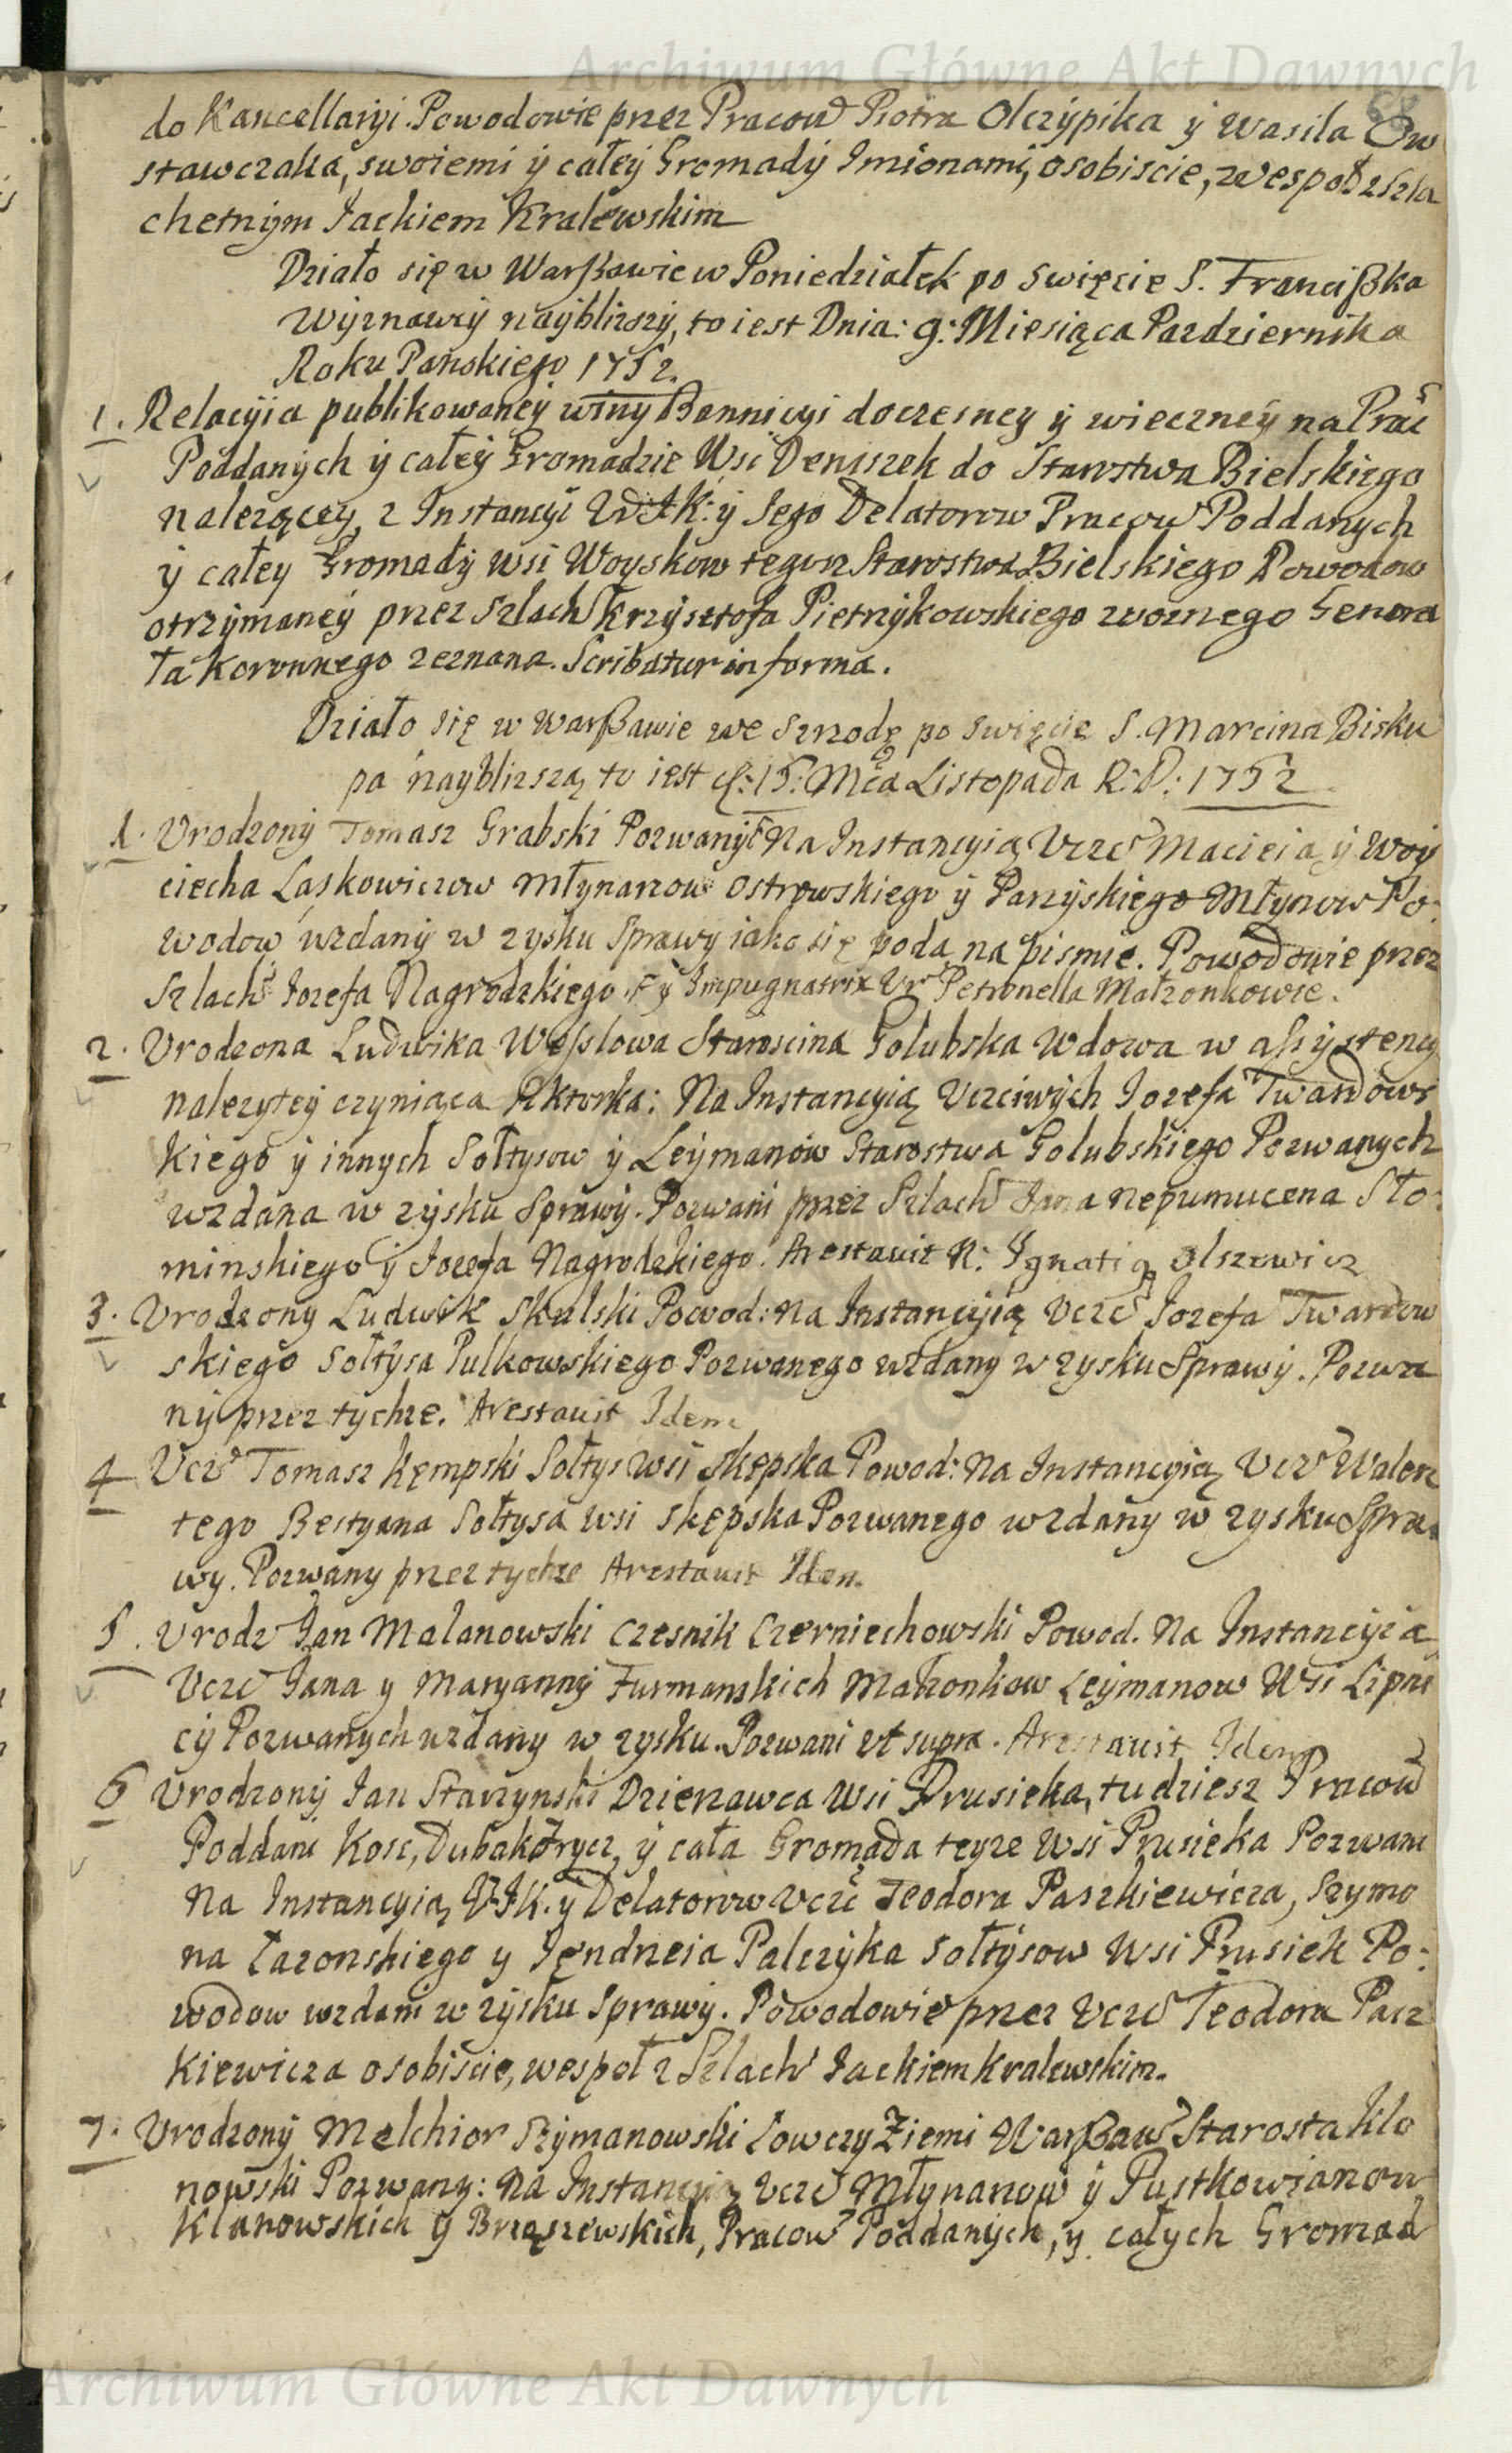 Archiwum Główne Akt Dawnych
68
do Kancellaryi. Powodowie przez Pracow Piotra Olczypika y Wasila Ow
stawczaka, swoiemi y całey Gromady Imionami, osobiscie, wespoł z Szla
chetnym Jackiem Kralewskim
Działo się w Warszawie w Poniedziałek po Swięcie S. Franciszka
Wyznawcy nayblizszy, to iest Dnia: 9: Miesiąca Pazdziernika
Roku Panskiego 1752.
1. Relacyia publikowaney winy Bannicyi doczesney y wieczney na Prac
Poddanych y całey Gromadzie Wsi Deniszek do Starostwa Bielskiego
nalezącey, z Instancyi y Jego Delatorow Pracow Poddanych
y całey Gromady wsi Woyskow tegoz Starostwa Bielskiego Powodow
otrzymaney przez Szlach Krzysztofa Pietrzykowskiego woznego Genera
ła Koronnego zeznana. Scribatur in forma.
Działo się w Warszawie we Szrzodę po Swięcie S. Marcina Bisku
pa nayblizszą to iest d: 15: Mca Listopada R: P: 1752
1. Urodzony Tomasz Grabski Pozwany Na Instancyią Uczc Macieia y Woy
ciecha Laskowiczow Młynarzow Ostrowskiego y Parzyskiego Młynow Po:
wodow wzdany w zysku Sprawy iako się poda na pismie. Powodowie przez
Szlach Jozefa Nagrodzkiego y Impugnatrix Ur Petronella Małzonkowie.
2. Urodzona Ludwika Wesslowa Staroscina Golubska Wdowa w assystency
nalezytey czyniąca Aktorka: Na Instancyią Uczciwych Jozefa Twardows
kiego y innych Sołtysow y Leymanow Starostwa Golubskiego Pozwanych
wzdana w zysku Sprawy. Pozwani przez Szlach Jana Nepumucena Sło:
minskiego y Jozefa Nagrodzkiego. Arestavit R: Ignatig Olszewicz
3. Urodzony Ludwik Skulski Powod: Na Instancyią Uczc Jozefa Twardow
skiego Sołtysa Pulkowskiego Pozwanego wzdany w zysku Sprawy. Pozwa
ny przez tychze. Arestavit Idem
4 Ucz Tomasz Kępski Sołtys wsi Skępska Powod: Na Instancyią Ucz Walen
tego Bestyana Sołtysa wsi Skępska Pozwanego wzdany w zysku Spra:
wy. Pozwany przez tychze Arestavit Idem.
5. Urodz Jan Malanowski Czesnik Czerniechowski Powod. Na Instancyią
Ucz Jana y Maryanny Furmanskich Małzonkow Leymanow Wsi Lipni
cy Pozwanych wzdany w zysku. Pozwani ut supra. Arestavit Idem
6 Urodzony Jan Starzynski Dzierzawca Wsi Prusieka, tudziesz Pracow
Poddani Kosc, Dubak y cała Gromada teyze Wsi Prusieka Pozwani
Na Instancyią y Delatorow Uczc Teodora Paszkiewicza, Szymo
na Łazonskiego y Jendrzeia Palczyka Sołtysow Wsi Prusiek Po:
wodow wzdani w zysku Sprawy. Powodowie przez Ucz Teodora Pasz
kiewicza osobiscie, wespoł z Szlach Jackiem Kralewskim.
7. Urodzony Melchior Szymanowski Łowczy Ziemi Warszaw Starosta Klo
nowski Pozwany: Na Instancyią Ucz Młynarzow y Pustkowianow
Klanowskich y Brząszewskich, Pracow Poddanych, y całych Gromad
Archiwum Główne Akt Dawnych